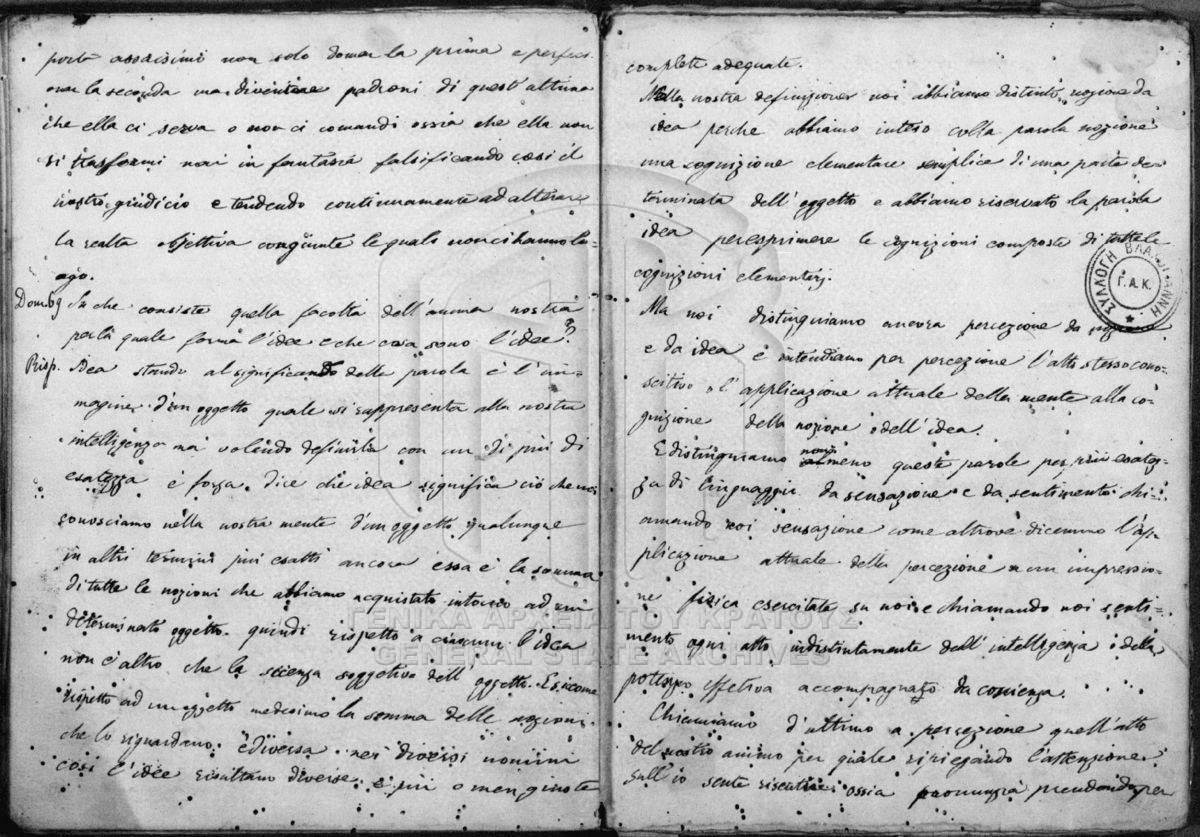 porta assaisimi non solo domar la prima e perfezi
onar la seconda ma diventare padroni di quest'altura
che ella ci serva o non ci comandi ossia che ella non
si trasformi mai in fantasia falsificando cosi il
nostro giudicio e tendendo continuamente ad alterare
la realta objettiva congiunte le quali non ci hanno lu-
ogo.
Dom. 69 In che consiste quella facoltà dell'anima nostra
per la quale forma l'idee e che cosa sono l'idee?
Risp. Idea stando al significando delle parola è l'im-
magine d'un oggetto quale si rappresenta alla nostra
intelligenza ma volendo definirla con un di più di
esatezza è forza dice che idea significa ciò che noi
conosciamo nella nostra mente d'un oggetto qualunque
in altri termini più esatti ancora essa è la somma
di tutte le nozioni che abbiamo acquistato intorno ad un
determinato oggetto. quindi rispetto a ciascun l'idea
non è altro che la scienza soggettiva dell'oggetto. E siccome
rispetto ad un oggetto medesimo la somma delle nozioni
che lo riguardano è diversa nei diversi uomini
cosi l'idee risultano diverse e più o men
complete adequate.
Nella nostra definizione noi abbiamo distinto nozione da
idea perche abbiamo inteso colla parola nozione
una cognizione elementare semplice di una parte de-
terminata dell'oggetto e abbiamo riservato la parola
idea per esprimere le cognizioni composte di tutte le
cognizioni elementari.
Ma noi distinguiamo ancora percezione da
e da idea e intendiamo per percezione l'atto stesso cono-
scitivo o l'applicazione attuale della mente alla co-
gnizione della nozione o dell'idea.
E distinguiamo queste parole per più esatez-
za di linguaggio da sensazione e da sentimento chi-
amando noi sensazione come altrove dicemmo l'ap-
plicazione attuale della percezione a un impressio-
ne fisica esercitata su noi e chiamando noi senti-
mento ogni atto indistintamente dell'intelligenza o della
effetiva accompagnato da coscienza.
Chiamiamo d'ultimo a percezione quell'atto
del nostro animo per quale ripiegando l'attenzione
sull'io sente ossia pronunzia prendendo per
ΣΥΛΛΟΓΗ ΒΛΑΧΟΓΙΑΝΝΗ
Γ.Α.Κ.
ΓΕΝΙΚΑ ΑΡΧΕΙΑ ΤΟΥ ΚΡΑΤΟΥΣ
GENERAL STATE ARCHIVES